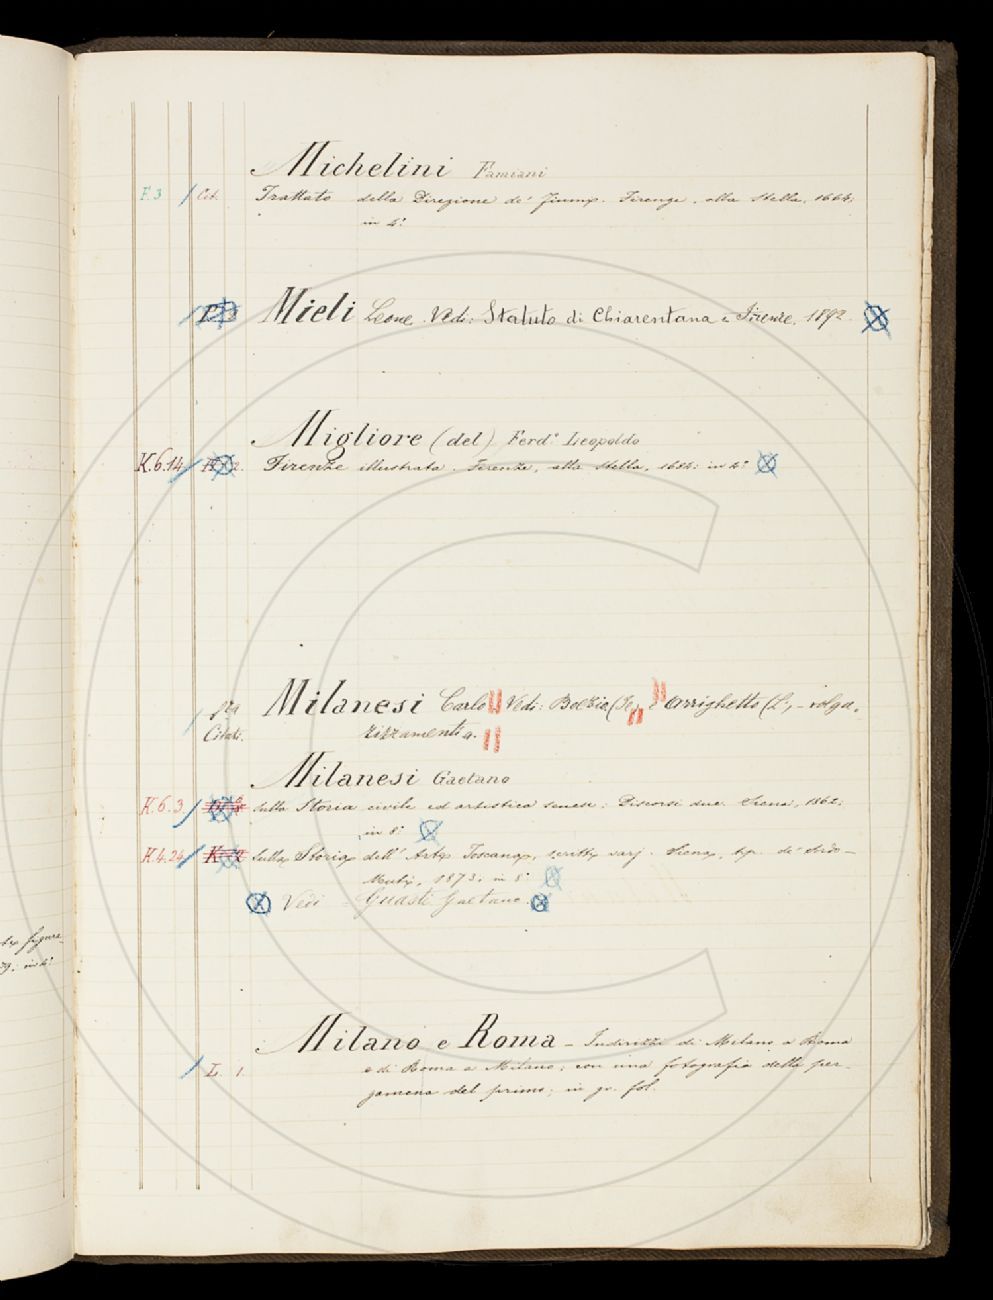 Michelini Famiani
F. 3 Cit. Trattato della Direzione de' Fiumi. Firenze, alla Stella, 1664;
in 4°
Mieli Leone. Vedi: Statuto di Chiarentana e Firenze, 1892.
Migliore (del) Ferd° Leopoldo
K.6.14 Firenze illustrata. Firenze, alla Stella, 1684; in 4°
Milanesi Carlo Vedi: Boezio e Arrighetto – volga-
Citati. rizzamenti.
Milanesi Gaetano
K.6.3 Sulla Storia civile ed artistica senese: Discorsi due. Siena, 1862;
in 8°
K.4.24 Sulla Storia dell' Arte Toscana, scritti varj. Siena, tip. de' Sordo-
Muti, 1873; in 8°
Vedi Guasti Gaetano.
te figure
79; in 4°
Milano e Roma – Indirizzi di Milano a Roma
L. 1. e di Roma a Milano; con una fotografia della per-
gamena del primo; in gr. fol.
C